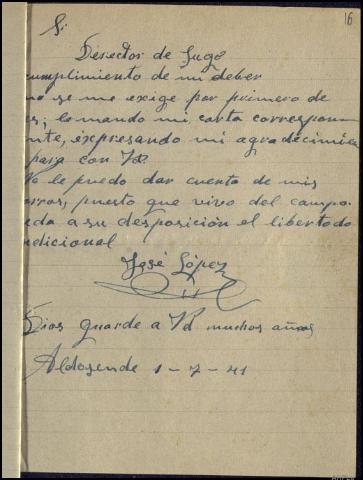 16
Sr
Desector de Lugo
cumplimiento de mi deber
mo se me exige por primero de
es; lo mando mi carta correspon
nte, expresando mi agradecimie
para con Vd
No le puedo dar cuenta de mis
orros, puesto que vivo del campo.
eda a su desposición el libertado
ndicional
José López
Dios guarde a Vd muchos años
Aldosende 1-7-41